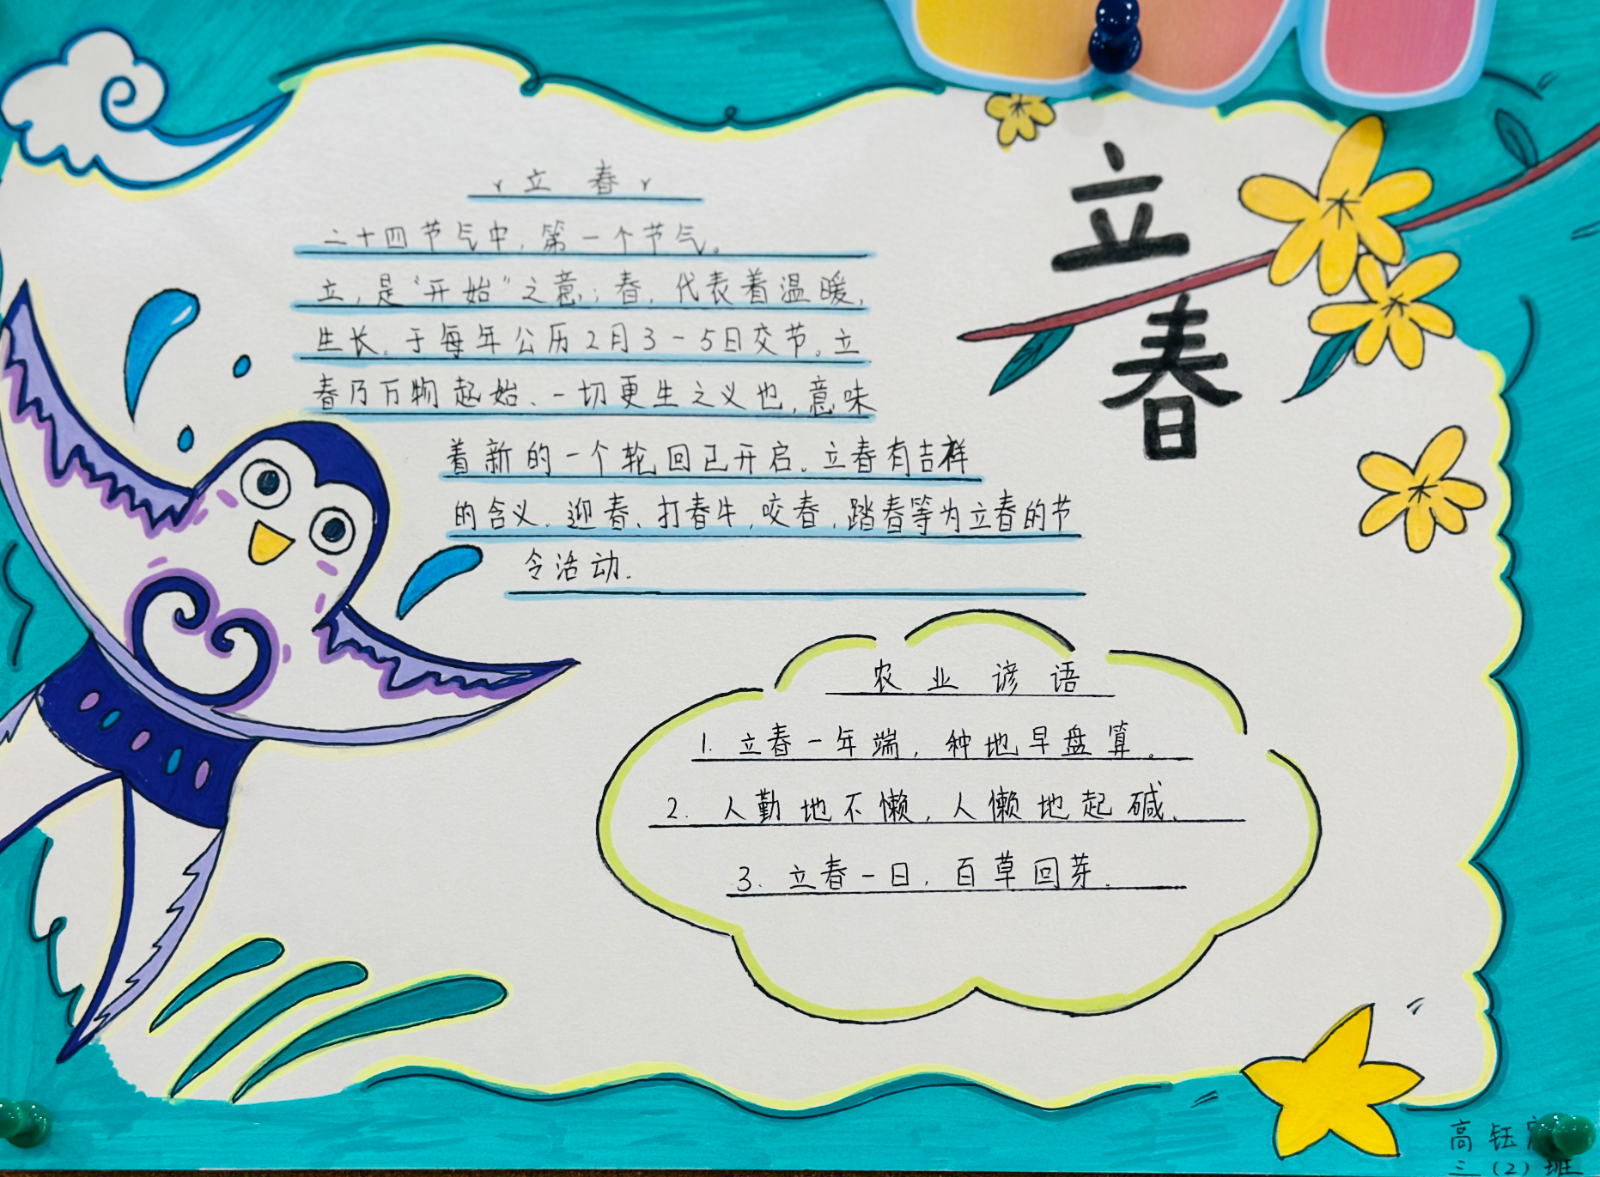 立春
立春
二十四节气中，第一个节气。
立，是“开始”之意；春，代表着温暖，
生长。于每年公历2月3-5日交节。立
春乃万物起始、一切更生之义也，意味
着新的一个轮回已开启。立春有吉祥
的含义，迎春、打春牛，咬春，踏春等为立春的节
令活动.
农业谚语
1. 立春一年端，种地早盘算。
2. 人勤地不懒，人懒地起碱.
3. 立春一日，百草回芽.
高钰
三(2)班